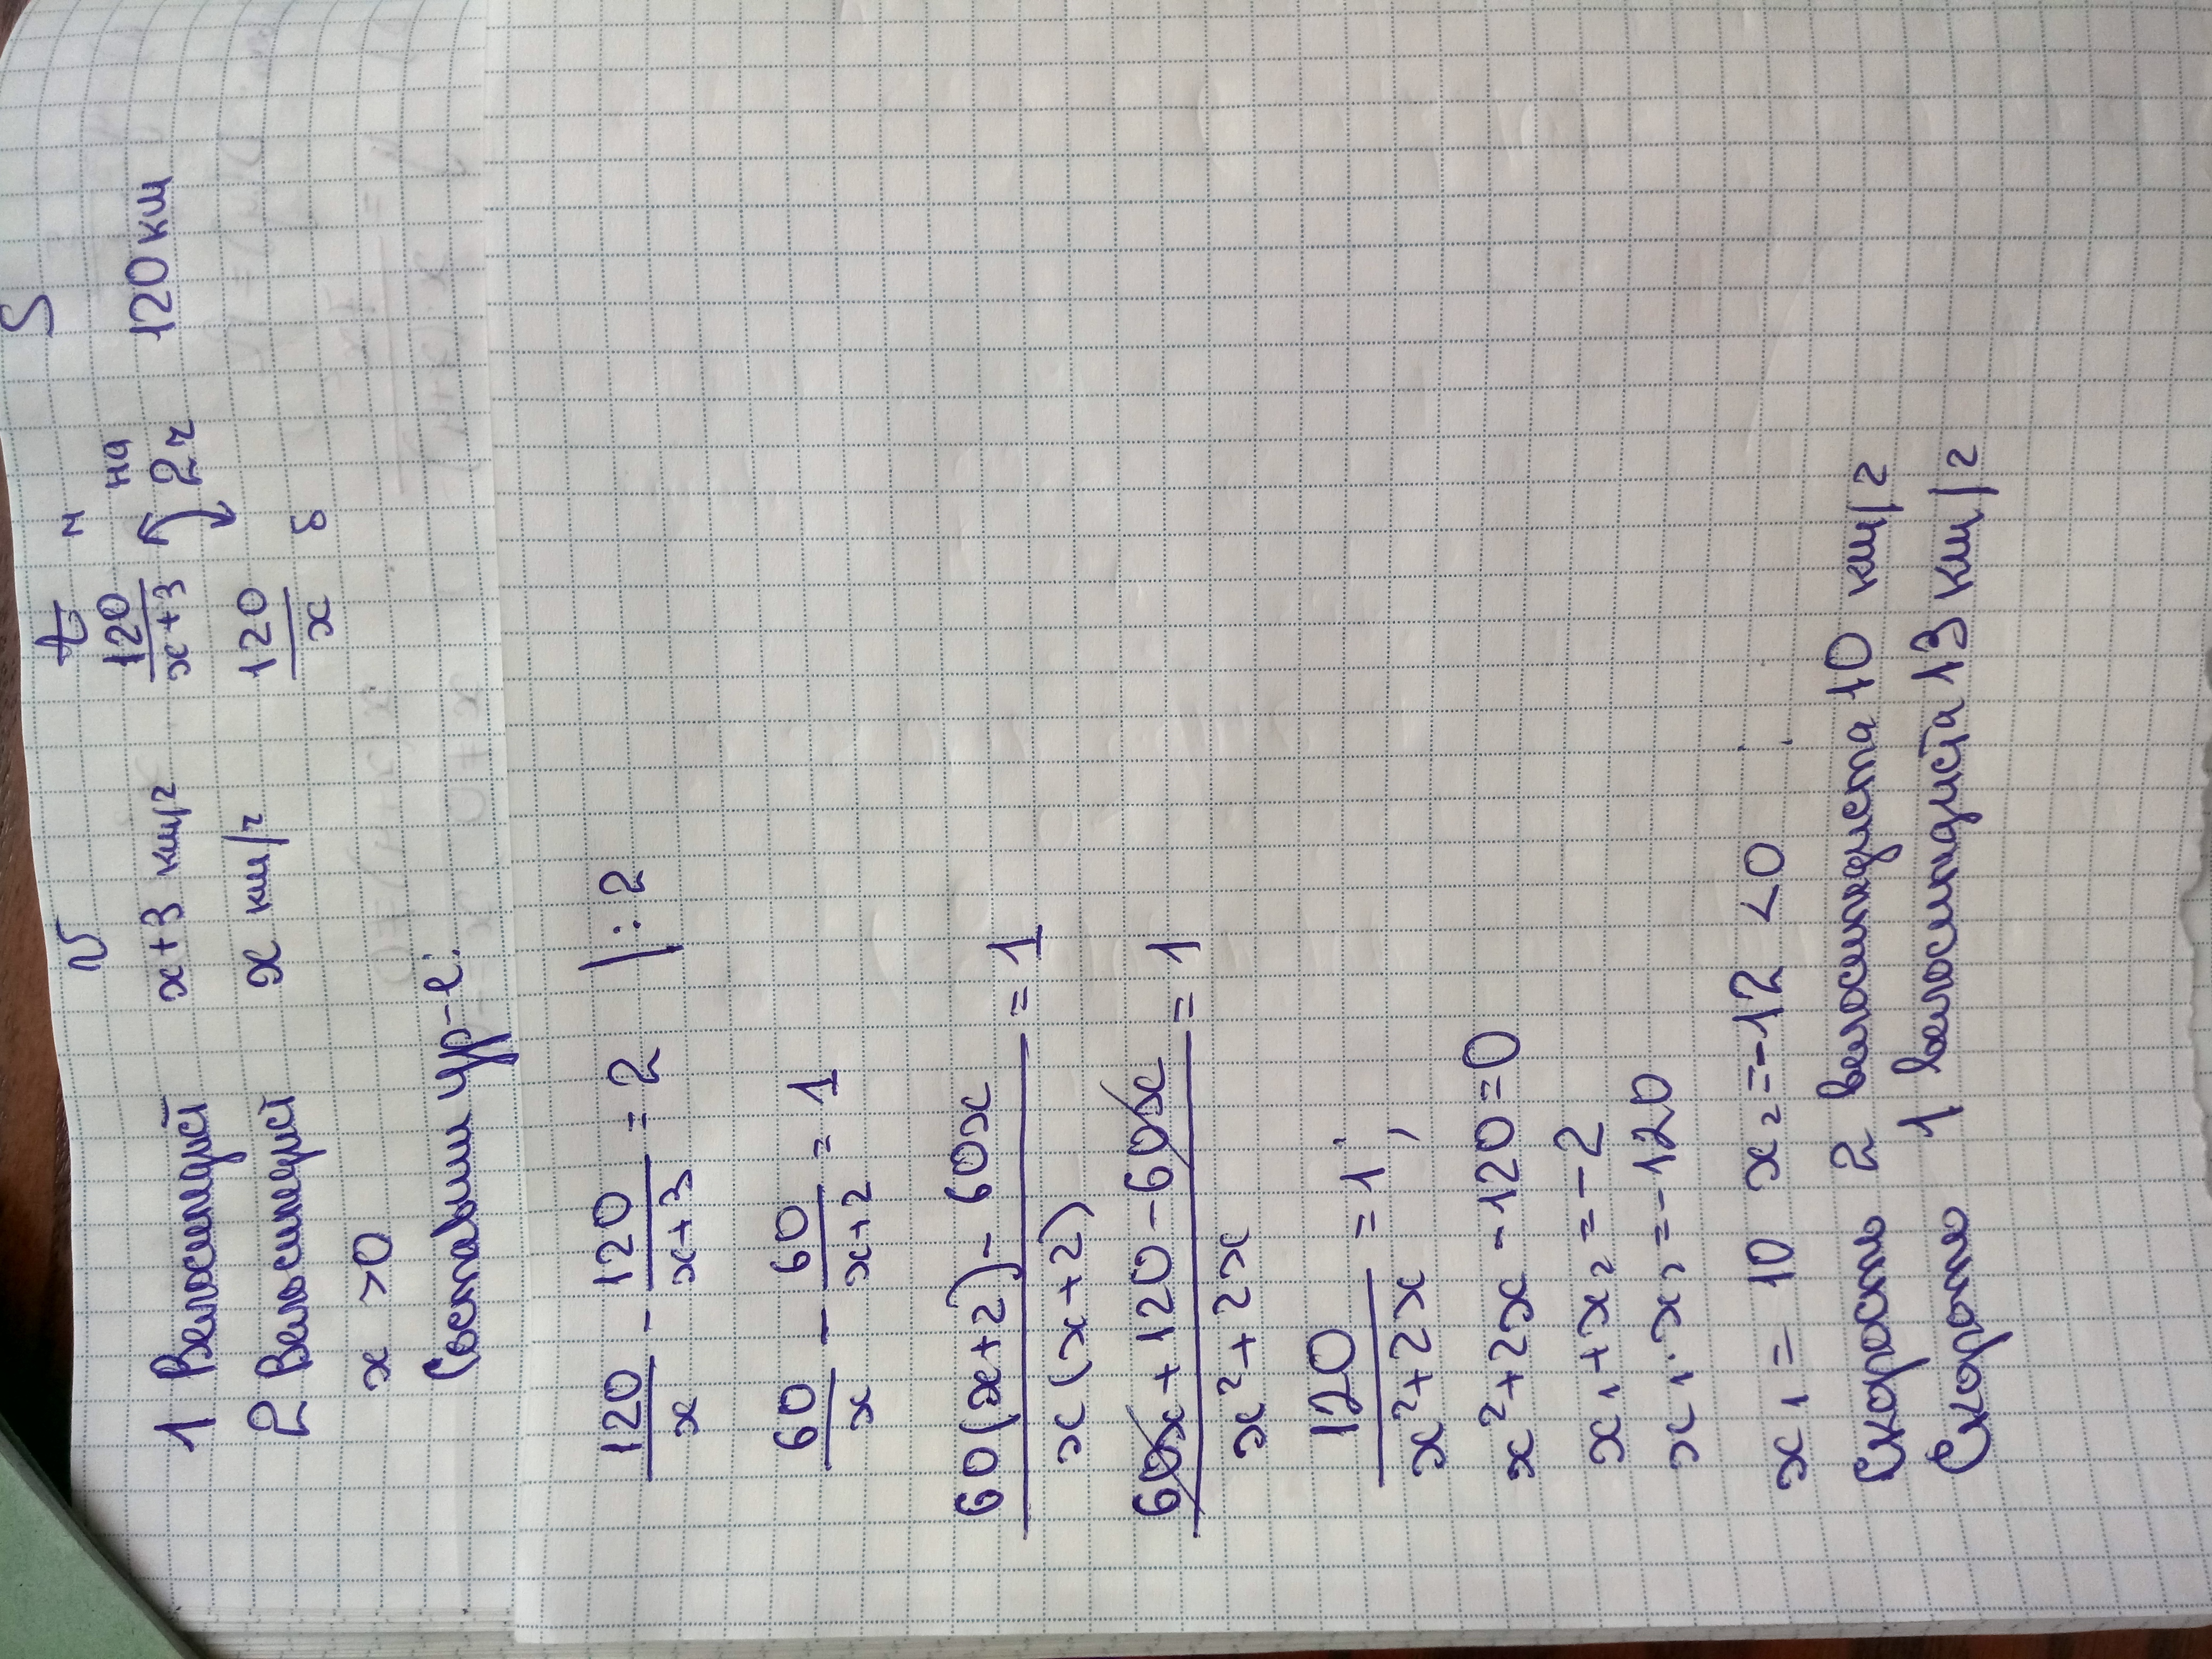 v t м S
1 Велосипедист x+3 км/ч 120/(x+3) на 2ч 120 км
2 Велосипедист x км/ч 120/x б
x > 0
Составим ур-е:
120/x - 120/(x+3) = 2 |:2
60/x - 60/(x+2) = 1
(60(x+2) - 60x)/(x(x+2)) = 1
(60x + 120 - 60x)/(x²+2x) = 1
120/(x²+2x) = 1;
x²+2x-120=0
x₁+x₂=-2
x₁·x₂=-120
x₁ = 10 x₂=-12 <0
Скорость 2 велосипедиста 10 км/ч
Скорость 1 велосипедиста 13 км/ч